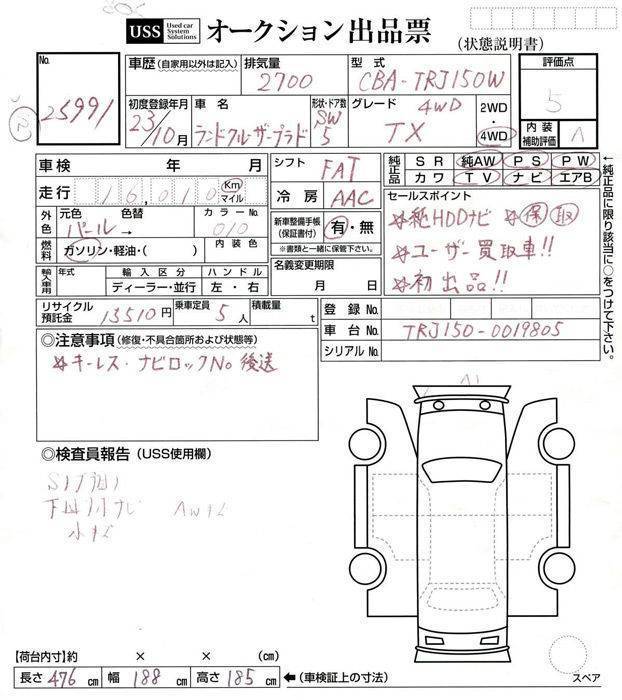 USS Used car System Solutions オークション出品票
(状態説明書)
No. 25991
車歴(自家用以外は記入)
排気量 2700
型式 CBA-TRJ150W
評価点 5
初度登録年月 23/10月
車名 ランドクルーザープラド
形状・ドア数 SW 5
グレード 4WD TX
2WD・4WD
内装補助評価 A
車検 年 月
シフト FAT
純正品 SR 純AW PS PW
カワ TV ナビ エアB
走行 16,010 Km マイル
冷房 AAC
セールスポイント
☆純HDDナビ ☆保取
☆ユーザー買取車!!
☆初出品!!
外色 元色 パール→ 色替
カラーNo. 010
新車整備手帳(保証書付) 有・無
※書類と一緒に保管下さい。
燃料 ガソリン・軽油・( )
内装色
名義変更期限 月 日
輸入車用 年式 輸入区分 ディーラー・並行 ハンドル 左・右
リサイクル預託金 13510円
乗車定員 5人
積載量 t
登録No.
車台No. TRJ150-0019805
シリアルNo.
←純正品に限り該当に○をつけて下さい。
◎注意事項(修復・不具合箇所および状態等)
☆キーレス・ナビロックNo後送
◎検査員報告(USS使用欄)
A1
スペア
【荷台内寸】約 × × (cm)
長さ 476 cm 幅 188 cm 高さ 185 cm ←(車検証上の寸法)